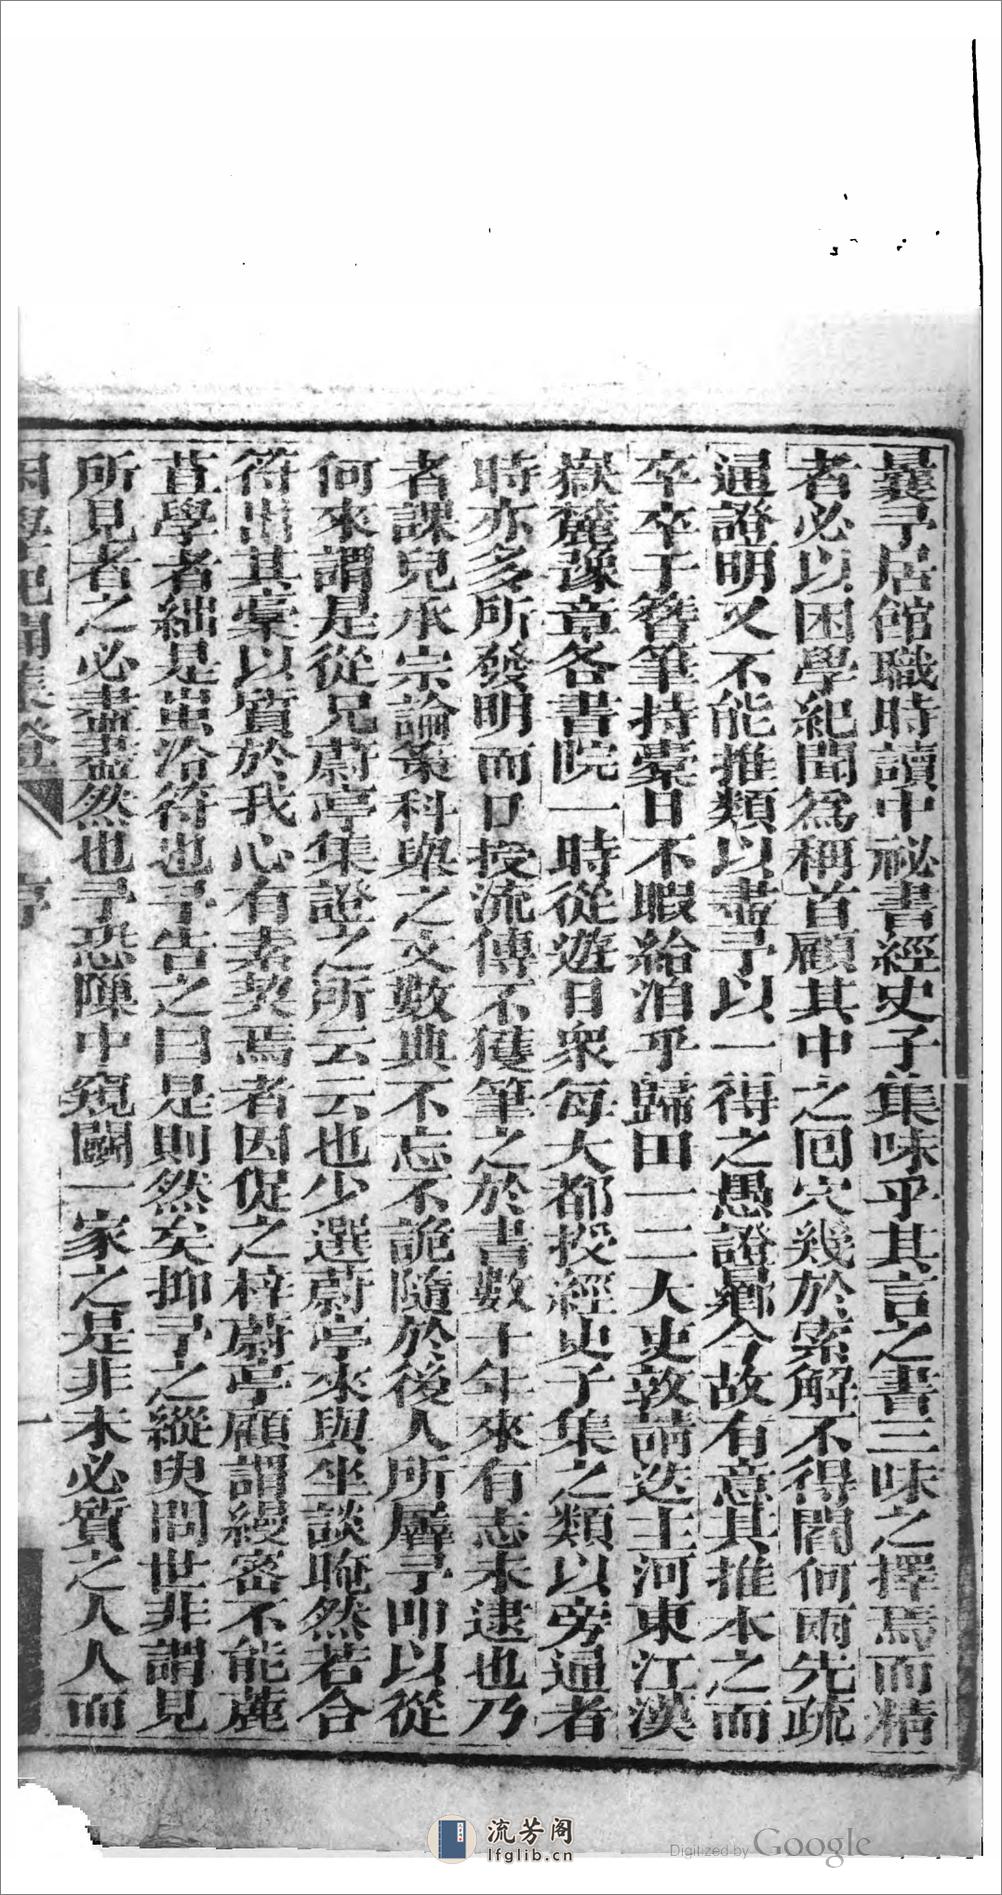 曩予居館職時讀中祕書經史子集味乎其言之書三味之擇焉而精
者必以困學紀聞爲稱首顧其中之回穴幾於索解不得閻何兩先疏
通證明又不能推類以盡予以一得之愚證鄉今故有意其推本之而
卒卒于簪筆持橐日不暇給洎乎歸田一二大吏敦請迭主河東江漢
嶽麓豫章各書院一時從遊日衆每大都授經史子集之類以旁通者
時亦多所發明而口授流傳不獲筆之於書數十年來有志未逮也乃
者課兒承宗論策科舉之文數典不忘不詭隨於後人所羼予叩以從
何來謂是從兄蔚亭集證之所云云也少選蔚亭來與坐談晻然若合
符出其稾以質於我心有素契焉者因促之梓蔚亭顧謂縵密不能麓
苴學者絀是虽洽符也予告之曰是則然矣抑予之縱臾問世非謂見
所見者之必盡盡然也予恐陳中窺鬭一家之是非未必質之人人而
困學紀聞集證
序
一
流芳阁
lfglib.cn
Digitized by Google